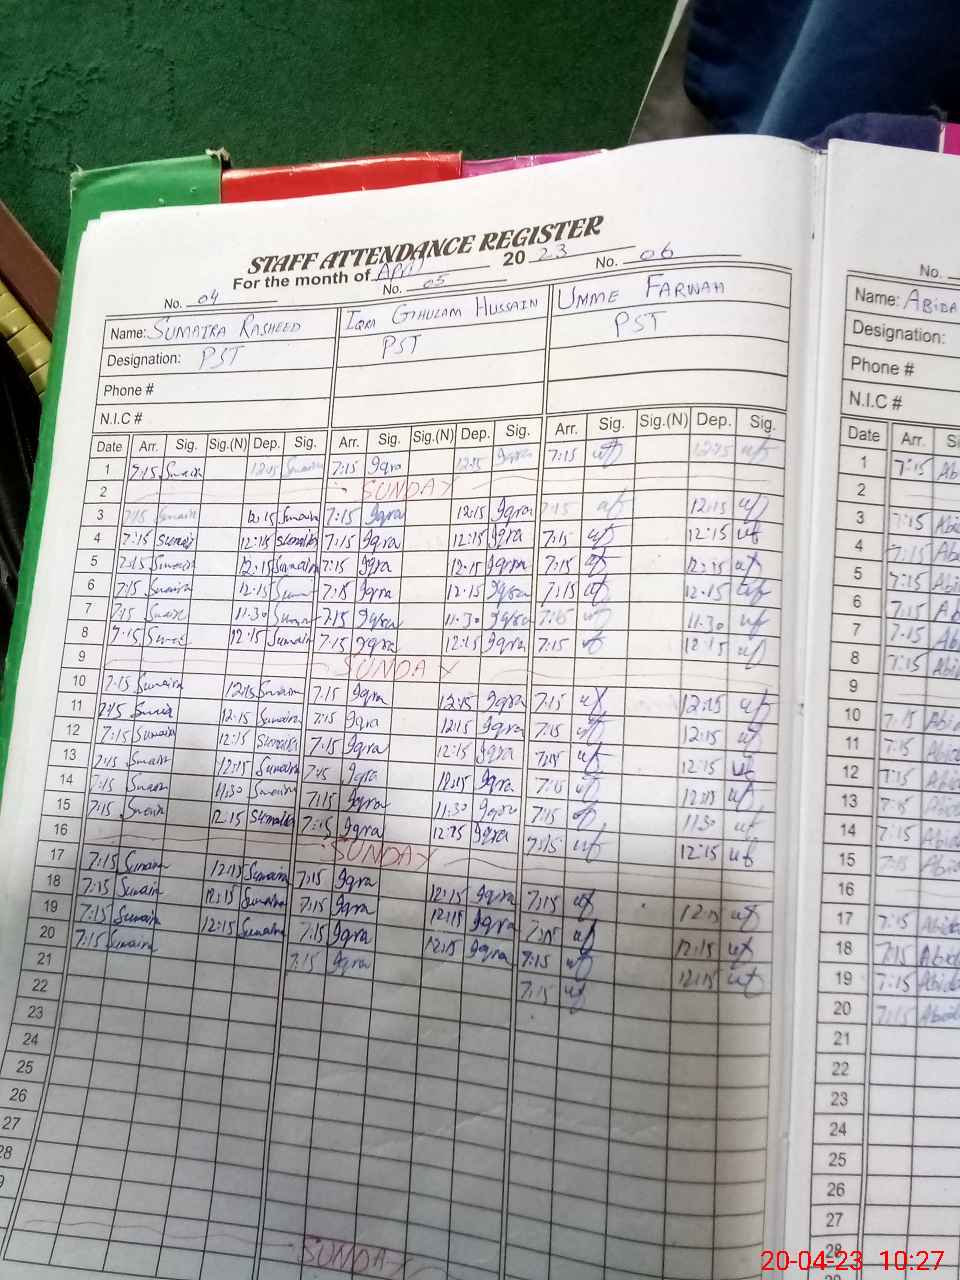 STAFF ATTENDANCE REGISTER
For the month of April 20 23
No. 04 No. 05 No. 06
Name: SUMAIRA RASHEED IQRA GHULAM HUSSAIN UMME FARWAH
Designation: PST PST PST
Phone #
N.I.C #
Date Arr. Sig. Sig.(N) Dep. Sig. Arr. Sig. Sig.(N) Dep. Sig. Arr. Sig. Sig.(N) Dep. Sig.
1 7:15 Sumaira 12:15 Sumaira 7:15 Iqra 12:15 Iqra 7:15 uf 12:15 uf
2 SUNDAY
3 7:15 Sumaira 12:15 Sumaira 7:15 Iqra 12:15 Iqra 7:15 uf 12:15 uf
4 7:15 Sumaira 12:15 Sumaira 7:15 Iqra 12:15 Iqra 7:15 uf 12:15 uf
5 7:15 Sumaira 12:15 Sumaira 7:15 Iqra 12:15 Iqra 7:15 uf 12:15 uf
6 7:15 Sumaira 12:15 Sumaira 7:15 Iqra 12:15 Iqra 7:15 uf 12:15 uf
7 7:15 Sumaira 11:30 Sumaira 7:15 Iqra 11:30 Iqra 7:15 uf 11:30 uf
8 7:15 Sumaira 12:15 Sumaira 7:15 Iqra 12:15 Iqra 7:15 uf 12:15 uf
9 SUNDAY
10 7:15 Sumaira 12:15 Sumaira 7:15 Iqra 12:15 Iqra 7:15 uf 12:15 uf
11 7:15 Sumaira 12:15 Sumaira 7:15 Iqra 12:15 Iqra 7:15 uf 12:15 uf
12 7:15 Sumaira 12:15 Sumaira 7:15 Iqra 12:15 Iqra 7:15 uf 12:15 uf
13 7:15 Sumaira 12:15 Sumaira 7:15 Iqra 12:15 Iqra 7:15 uf 12:15 uf
14 7:15 Sumaira 11:30 Sumaira 7:15 Iqra 11:30 Iqra 7:15 uf 11:30 uf
15 7:15 Sumaira 12:15 Sumaira 7:15 Iqra 12:15 Iqra 7:15 uf 12:15 uf
16 SUNDAY
17 7:15 Sumaira 12:15 Sumaira 7:15 Iqra 12:15 Iqra 7:15 uf 12:15 uf
18 7:15 Sumaira 12:15 Sumaira 7:15 Iqra 12:15 Iqra 7:15 uf 12:15 uf
19 7:15 Sumaira 12:15 Sumaira 7:15 Iqra 12:15 Iqra 7:15 uf 12:15 uf
20 7:15 Sumaira 7:15 Iqra 7:15 uf
21
22
23
24
25
26
27
28
SUNDAY
No.
Name: ABIDA
Designation:
Phone #
N.I.C #
Date Arr.
1 7:15
2
3 7:15
4 7:15
5 7:15
6 7:15
7 7:15
8 7:15
9
10 7:15
11 7:15
12 7:15
13 7:15
14 7:15
15 7:15
16
17 7:15 Abida
18 7:15 Abida
19 7:15 Abida
20 7:15 Abida
21
22
23
24
25
26
27
28
20-04-23 10:27